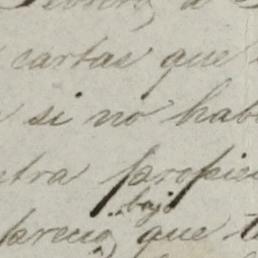 cartas que
si no hab
tra propie
bajo
precio, que t